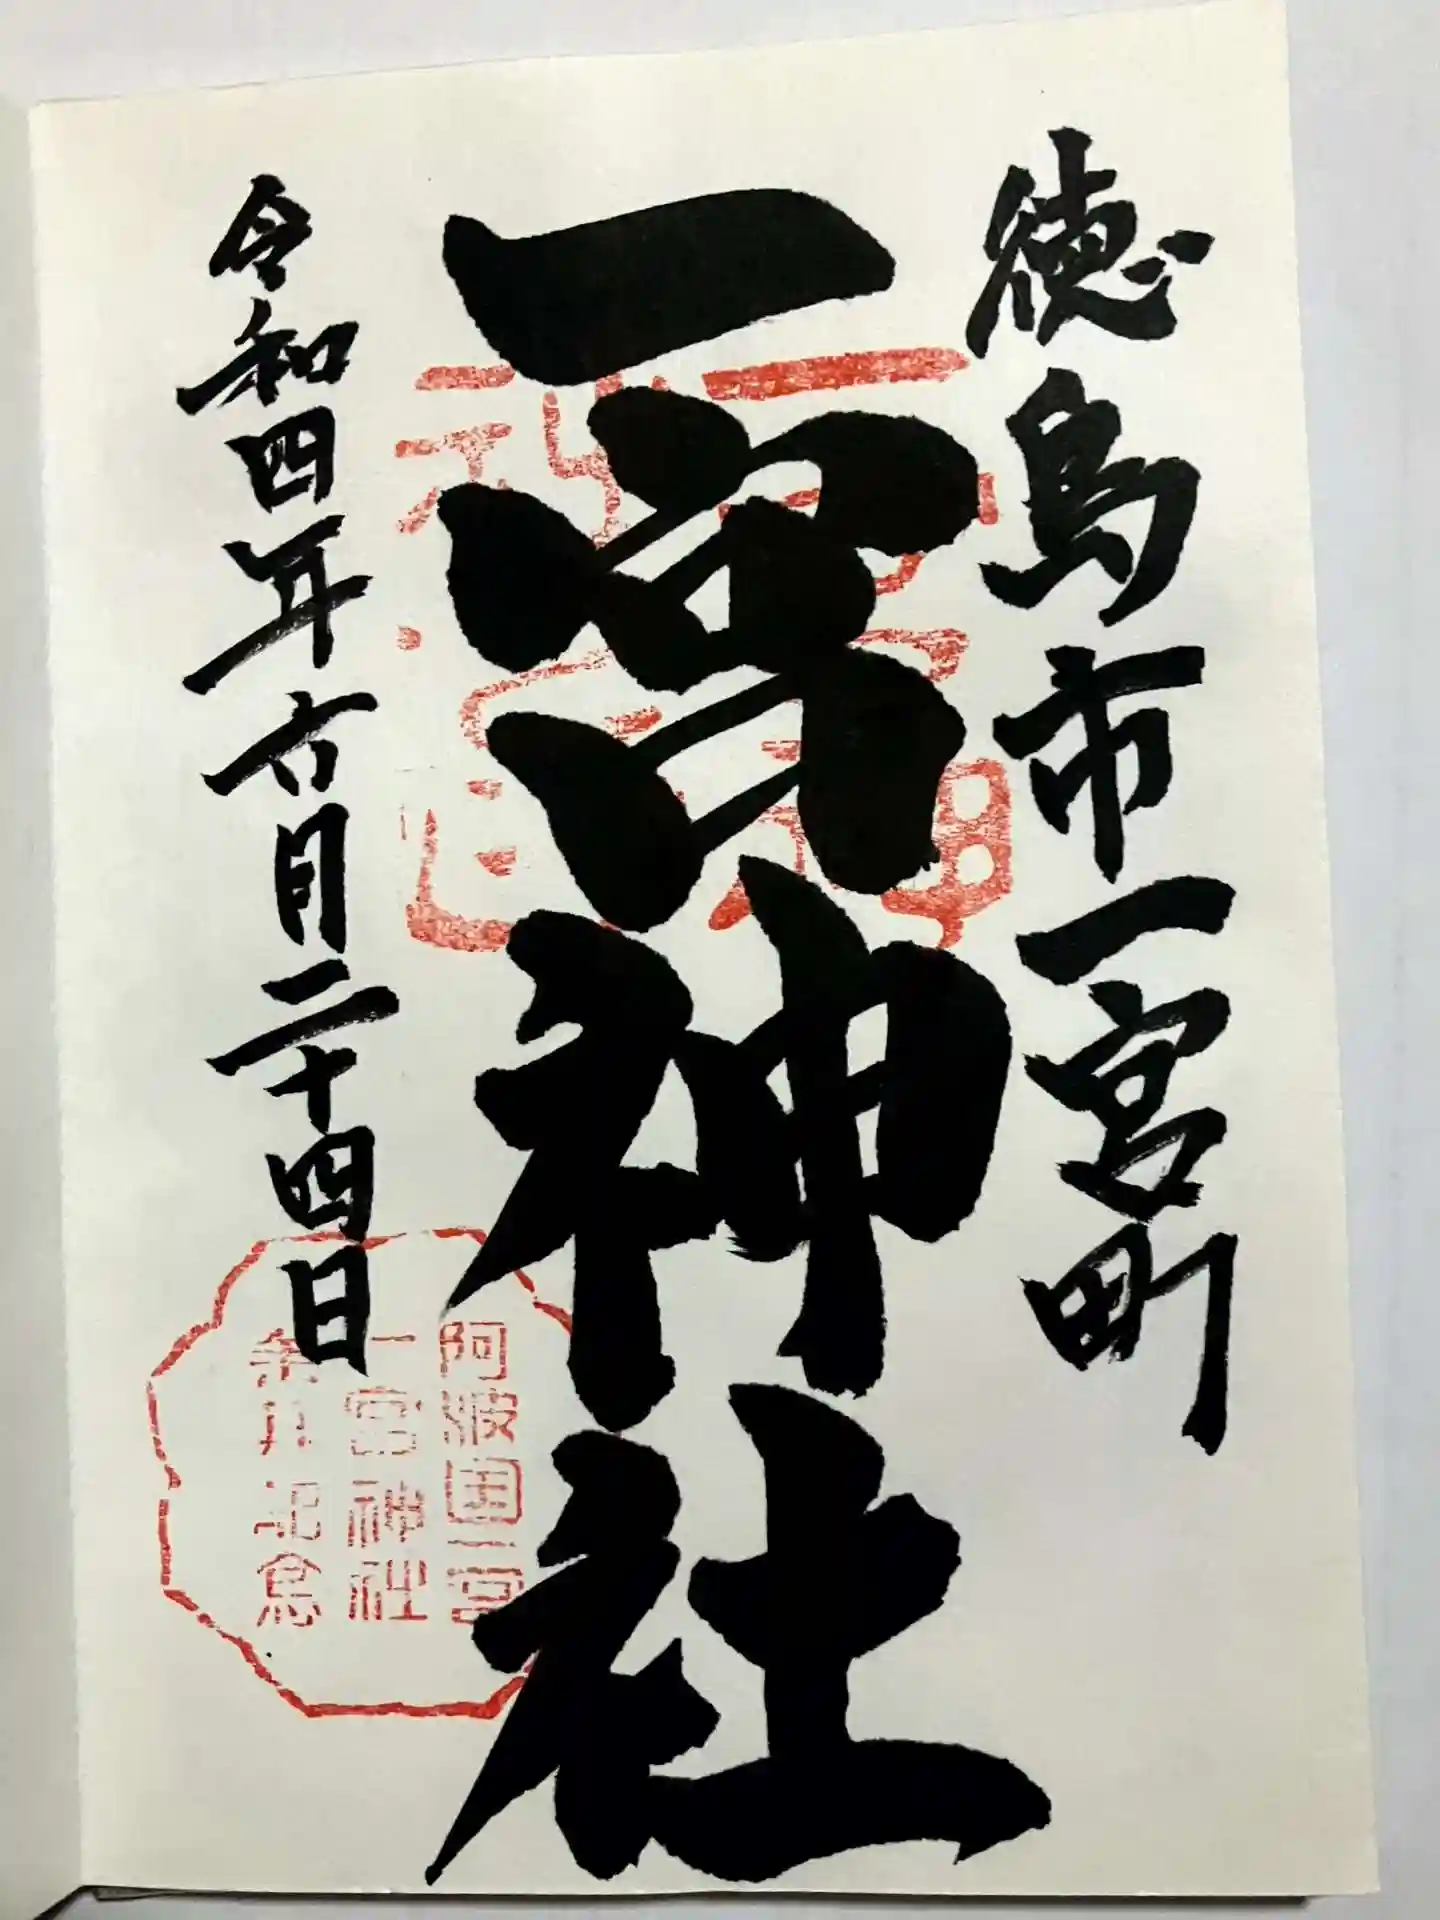 徳島市一宮町
一宮神社
令和四年六月二十四日
阿波国一宮
一宮神社
参拝記念